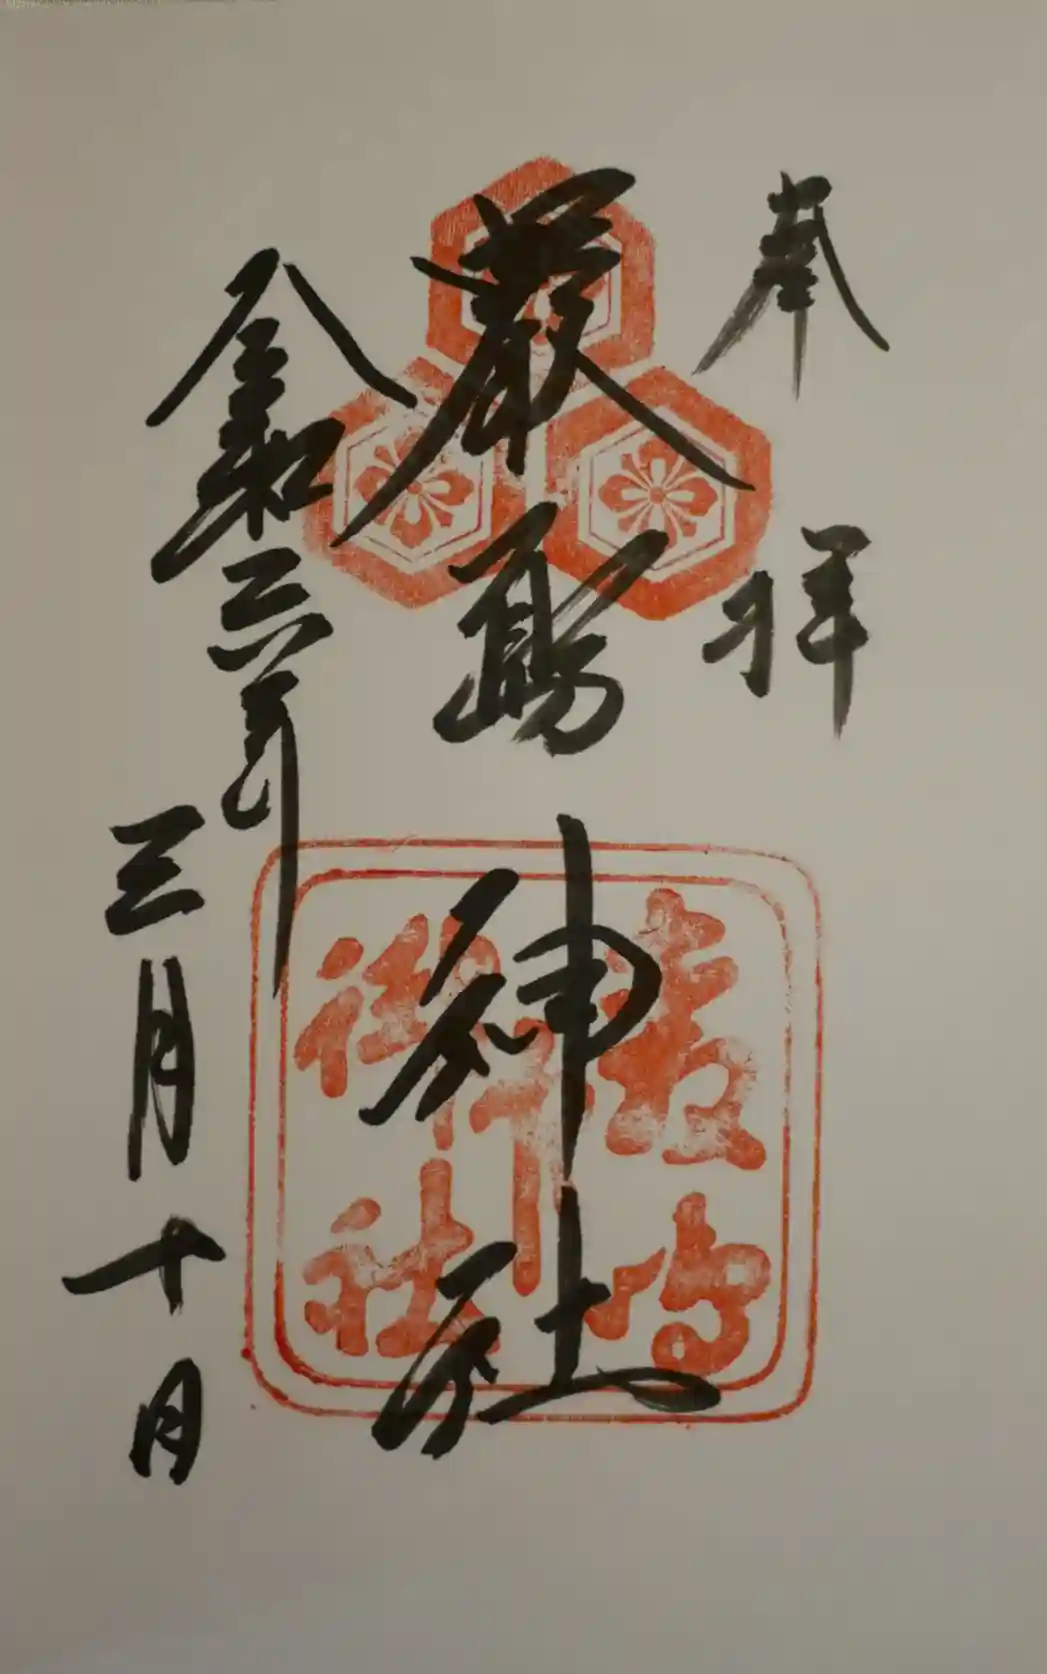 奉拝
嚴島神社
嚴島神社
令和六年
三月十日